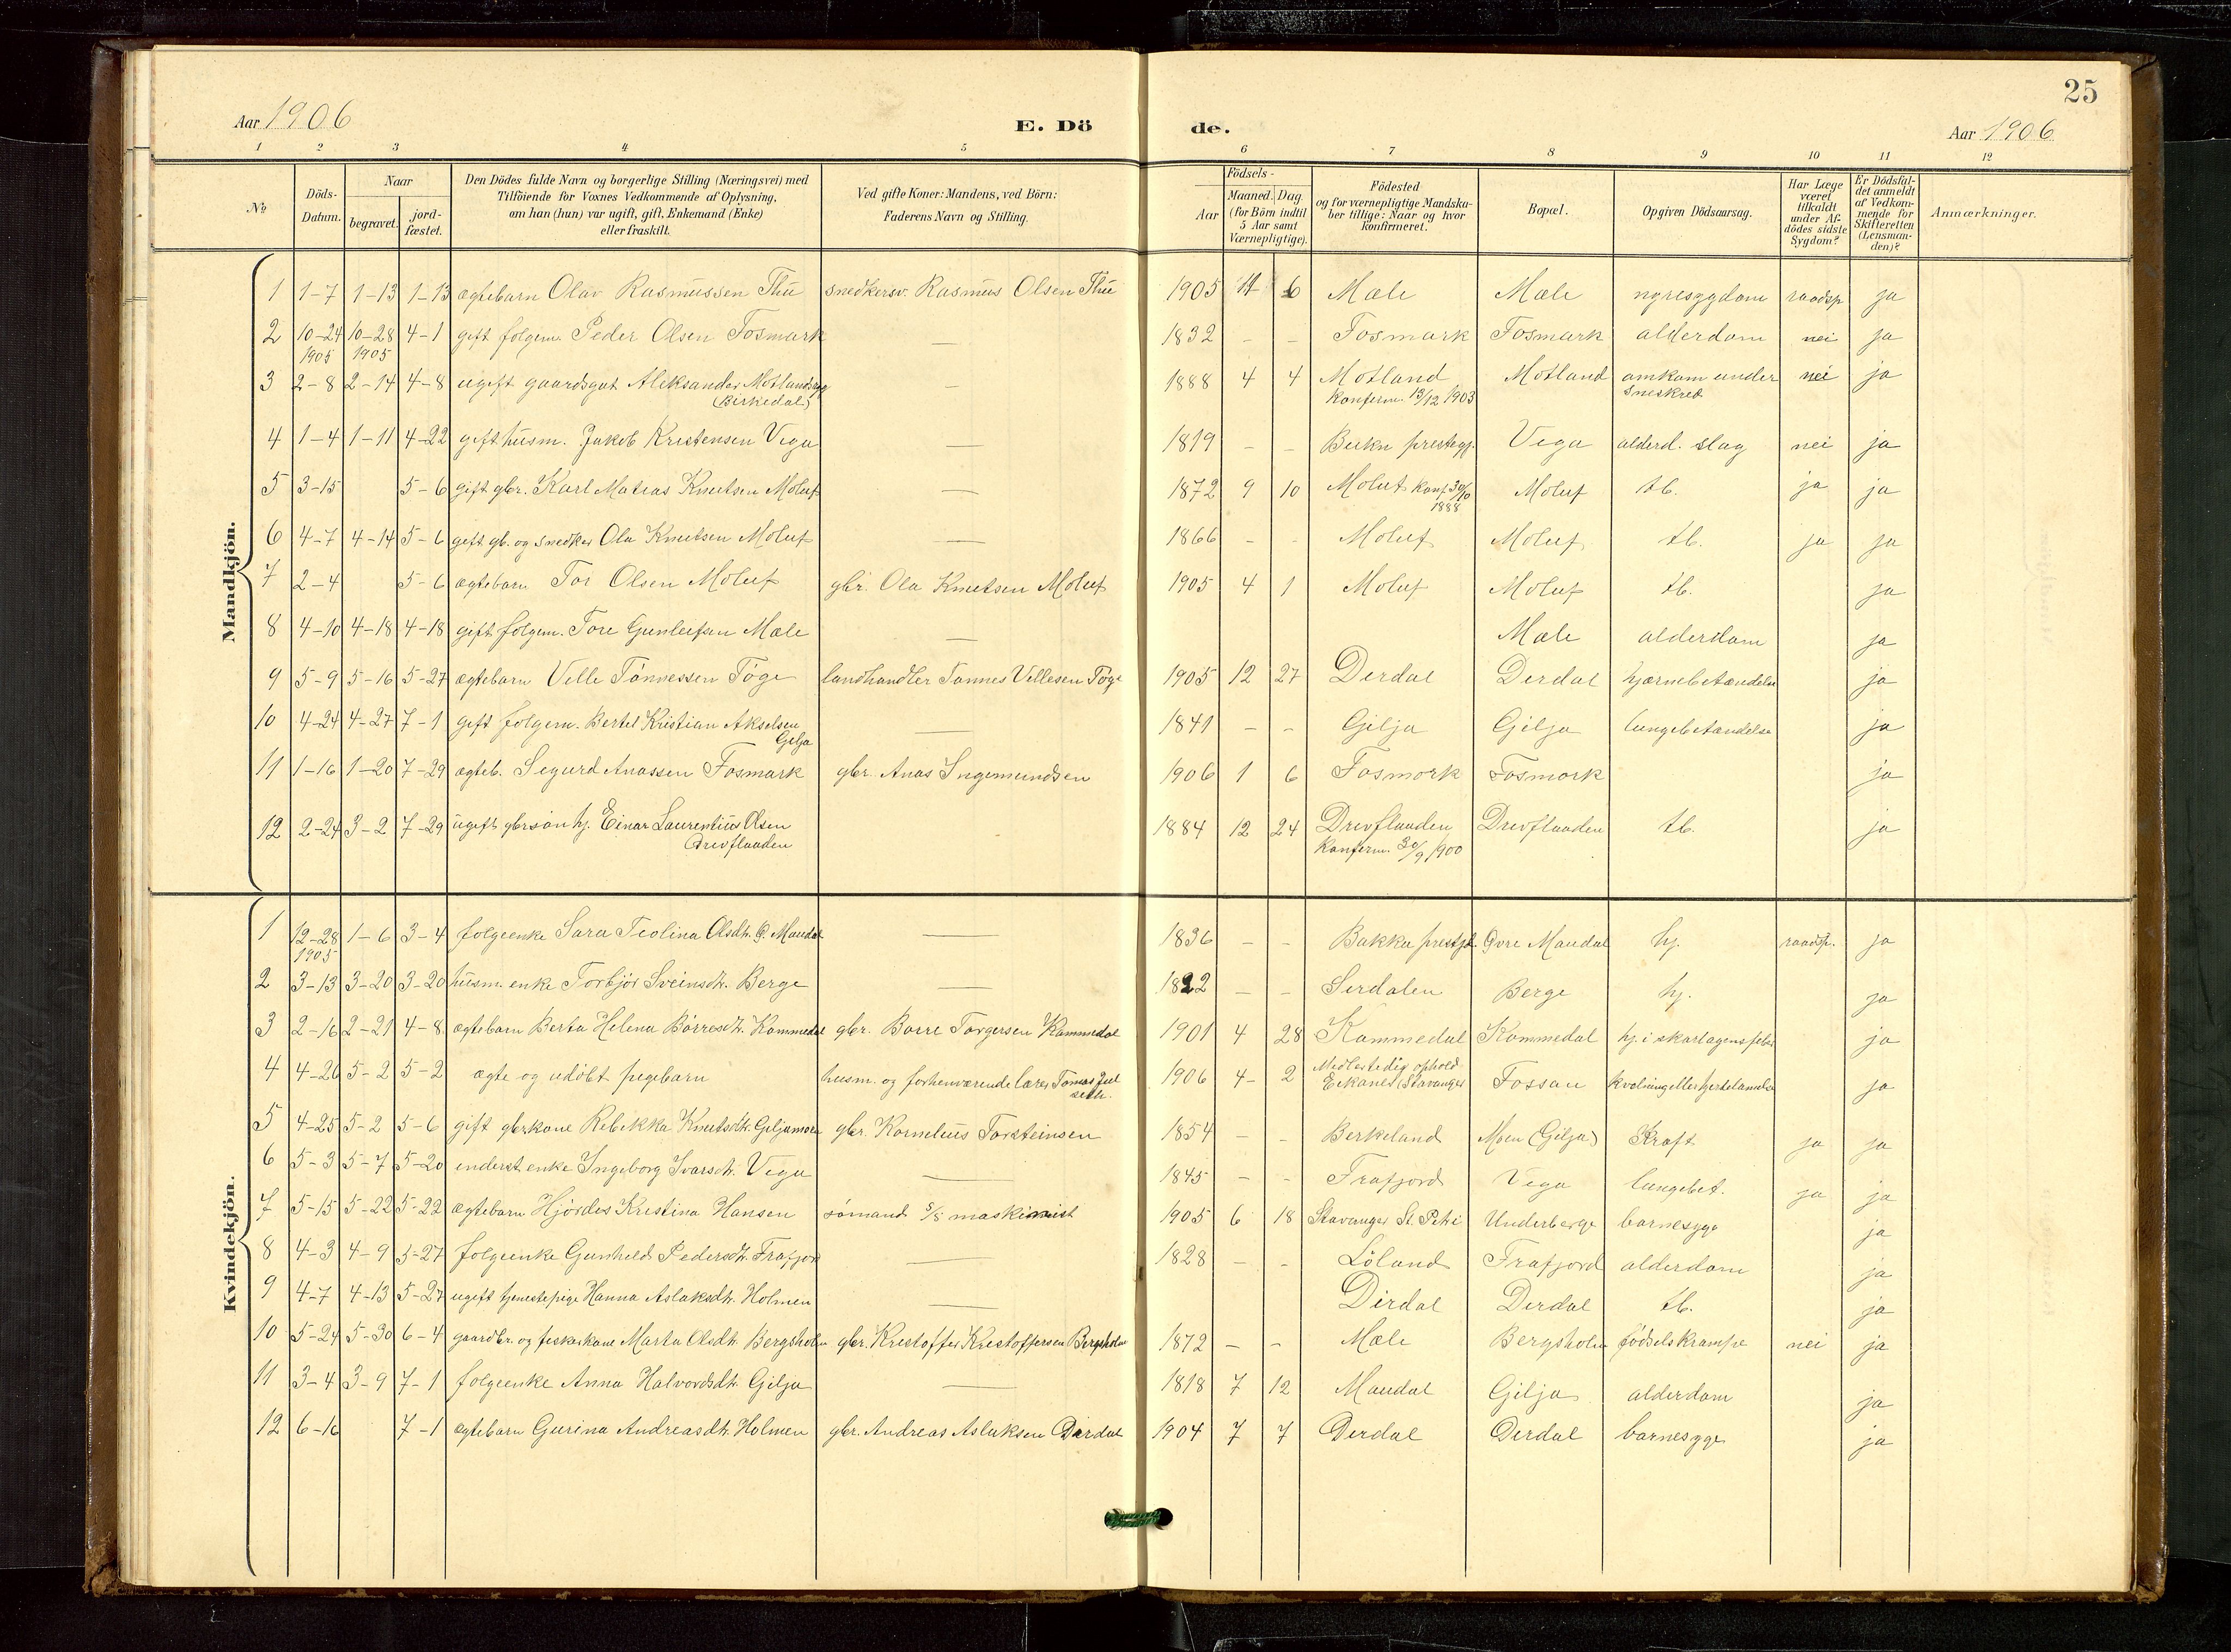 25
Aar 1906
E. Dö
de.
Aar 1906
1 2 3 4 5 6 7 8 9 10 11 12
No
Döds-Datum.
Naar
begravet.
jord-fæstet.
Den Dödes fulde Navn og borgerlige Stilling (Næringsvei) med
Tilföiende for Voxnes Vedkommende af Oplysning,
om han (hun) var ugift, gift, Enkemand (Enke)
eller fraskilt.
Ved gifte Koner: Mandens, ved Börn:
Faderens Navn og Stilling.
Födsels-
Aar
Maaned. Dag
(for Börn indtil
5 Aar samt
Værnepligtige).
Födested
og for værnepligtige Mandska-
ber tillige: Naar og hvor
konfirmeret.
Bopæl.
Opgiven Dödsaarsag.
Har Læge
været
tilkaldt
under Af-
dödes sidste
Sygdom?
Er Dödsfal-
det anmeldt
af Vedkom-
mende for
Skifteretten
(Lensman-
den)?
Anmærkninger.
Mandkjön.
1 1-7 1-13 1-13 ægtebarn Olav Rasmussen Thu snedkersv. Rasmus Olsen Thu 1905 11 6 Mæle Mæle nyresygdom raadsp ja
2 10-24 10-28 4-1 gift folgem. Peder Olsen Fosmark — 1832 - - Fosmark Fosmark alderdom nei ja
1905 1905
3 2-8 2-14 4-8 ugift gaardsgut Aleksander Motlandsyg — 1888 4 4 Motland Motland omkom under nei ja
(Birkedal) Konferm. 13/12 1903 sneskred
4 1-4 1-11 4-22 gift husm. Jakob Kristensen Vega — 1819 - - Bukn prestegj. Vega alderd. slag nei ja
5 3-15 5-6 gift gbr. Karl Matias Knutsen Moluf — 1872 9 10 Moluf konf 30/10 Moluf tb. ja ja
1888
6 4-7 4-14 5-6 gift gb. og snedker Ola Knutsen Moluf — 1866 - - Moluf Moluf tb. ja ja
7 2-4 5-6 ægtebarn Tor Olsen Moluf gbr. Ola Knutsen Moluf 1905 4 1 Moluf Moluf tb. ja
8 4-10 4-18 4-18 gift folgem. Tore Gunleifsen Mæle — Mæle alderdom ja
9 5-9 5-16 5-27 ægtebarn Velle Tönnessen Töge landhandler Tønnes Vellesen Töge 1905 12 27 Derdal Derdal hjærnebetændelse ja
10 4-24 4-27 7-1 gift folgem. Bertel Kristian Akselsen — 1841 - - Gilja Gilja lungebetændelse ja
Gilja
11 1-16 1-20 7-29 ægteb. Sigurd Anassen Fosmark gbr. Anas Ingemundsen 1906 1 6 Fosmork Fosmork ja
12 2-24 3-2 7-29 ugift gbrsön hj. Einar Laurentius Olsen 1884 12 24 Drevflaaden Drevflaaden tb. ja
Drevflaaden Konferm. 30/9 1900
Kvindekjön.
1 12-28 1-6 3-4 folgeenke Sara Teolina Olsdtr. Ø. Maudal — 1836 - - Bakka prestgj. Övre Maudal hj. raadsp. ja
1905
2 3-13 3-20 3-20 husm. enke Torbjör Sveinsdtr. Berge — 1822 - - Serdalen Berge hj. ja
3 2-16 2-21 4-8 ægtebarn Berta Helena Börresdtr. Kommedal gbr. Börre Torgersen Kommedal 1901 4 28 Kommedal Kommedal hj. i skarlagensfeber ja
4 4-26 5-2 5-2 ægte og udöbt pigebarn husm. og forhenværende lærer Tomas Juel 1906 4- 2 Medlertedig ophold Fossan kvælning eller hjertelamelse ja
seth. Stavanger
5 4-25 5-2 5-6 gift gbrkone Rebekka Knutsdtr. Giljamoen gbr. Kornelius Torsteinsen 1854 - - Berkeland Moen (Gilja) Kræft ja ja
6 5-3 5-7 5-20 inderst enke Ingeborg Ivarsdtr. Vega — 1845 - - Frafjord Vega lungebet. ja ja
7 5-15 5-22 5-22 ægtebarn Hjördes Kristina Hansen sömand s/s maskinist 1905 6 18 Stavanger St. Petri Underberge barnesyge ja
8 4-3 4-9 5-27 folgeenke Gunheld Pedersdtr. Frafjord — 1828 - - Löland Frafjord alderdom ja
9 4-7 4-13 5-27 ugift tjenestepige Hanna Aslaksdtr. Holmen — Dirdal Derdal tb. ja
10 5-24 5-30 6-4 gaardbr. og fiskerkone Marta Olsdtr. Bergsholm gbr. Kristoffer Kristoffersen Bergsholm 1872 - - Mæle Bergsholm födselskrampe nei ja
11 3-4 3-9 7-1 folgeenke Anna Halvordsdtr. Gilja — 1818 7 12 Maudal Gilja alderdom ja
12 6-16 7-1 ægtebarn Gurina Andreasdtr. Holmen gbr. Andreas Aslaksen Dirdal 1904 7 7 Derdal Derdal barnesyge ja